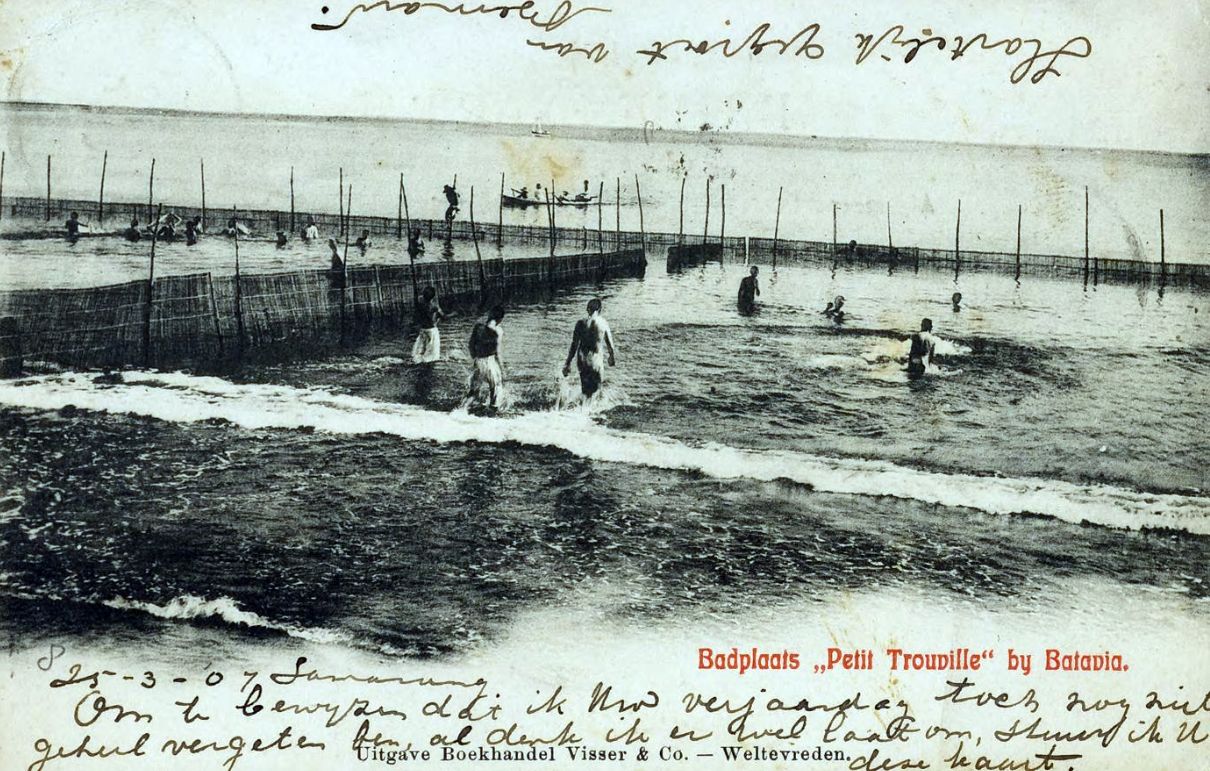 Hartelijk gegroet
van
Badplaats „Petit Trouville“ by Batavia.
25-3-07 Samarang
Om te bewyzen dat ik Uw verjaardag toch nog niet
geheel vergeten ben, al denk ik er wel laat om, stuur ik U
deze kaart.
Uitgave Boekhandel Visser & Co. — Weltevreden.